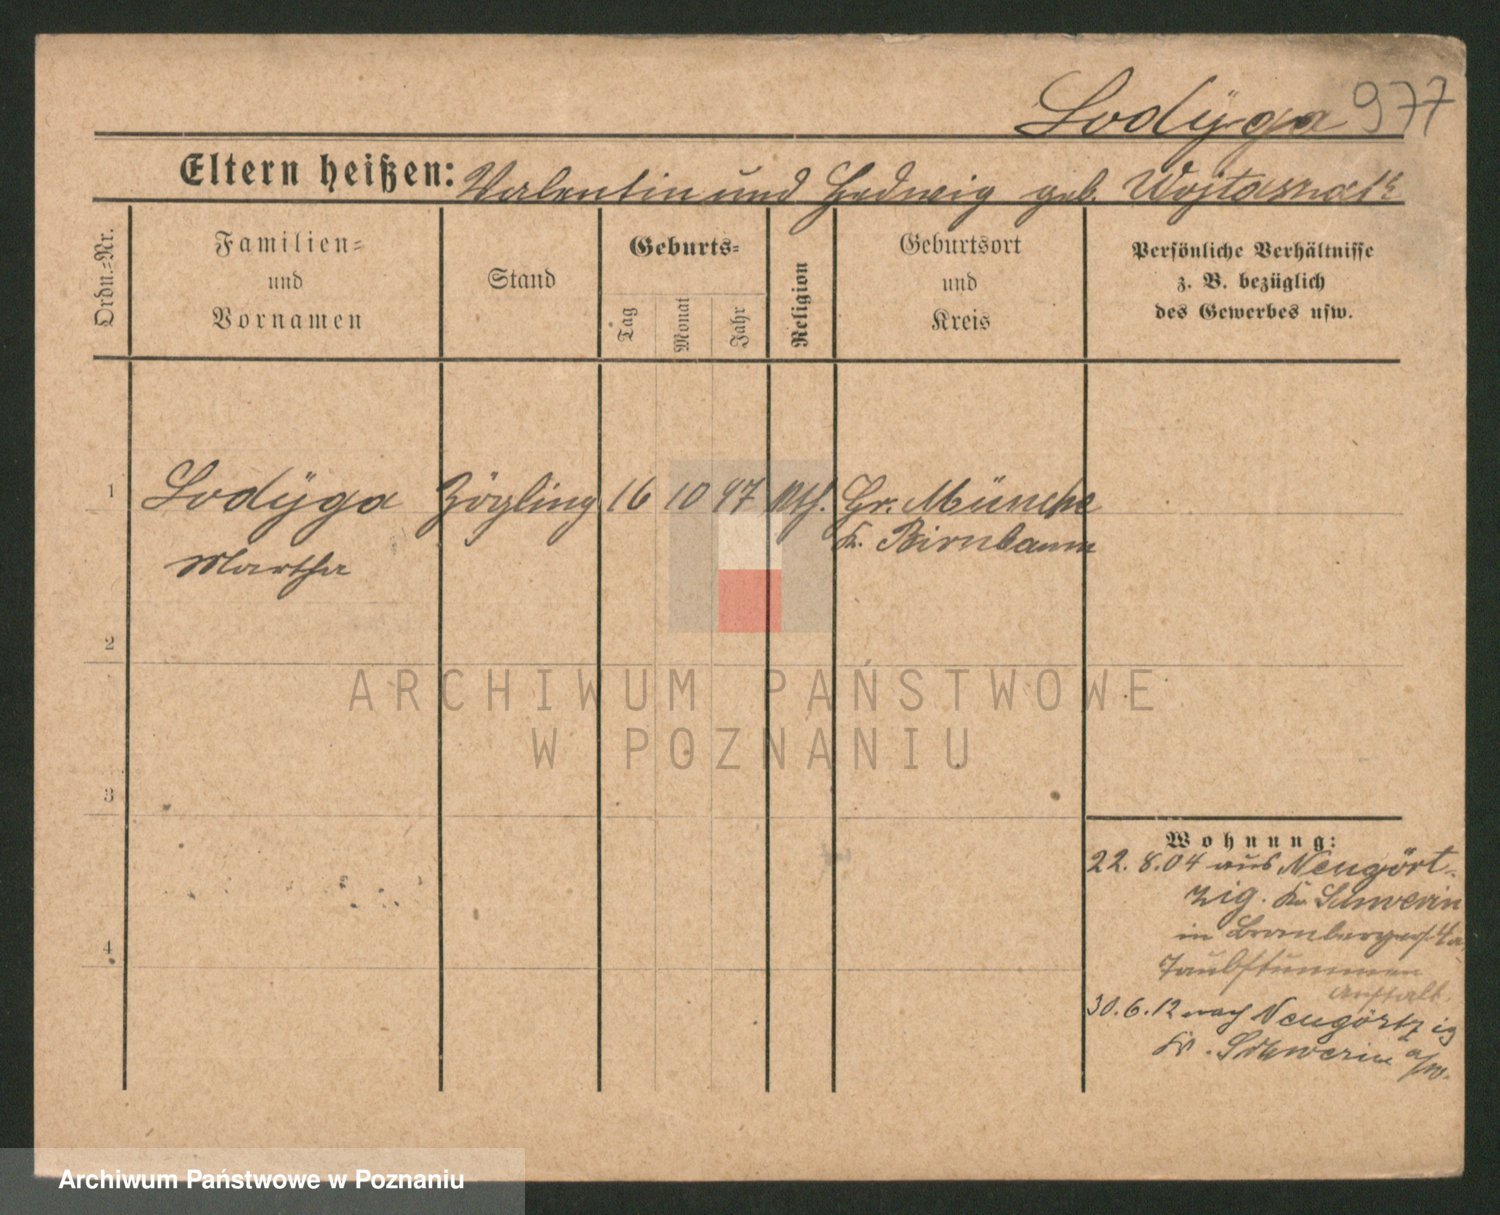 Lodÿga 977
Eltern heißen: Valentin und Hedwig geb. Wojtasrak
Ordn.=Nr.
Familien=
und
Vornamen
Stand
Geburts=
Tag
Monat
Jahr
Religion
Geburtsort
und
Kreis
Persönliche Verhältnisse
z. B. bezüglich
des Gewerbes usw.
1 Lodÿga Zögling 16 10 97 kth. Gr. Münche
Kr. Birnbaum
Martha
2
3
4
Wohnung:
22.8.04 aus Neugört-
zig. Kr. Schwerin
in Brombergerst. 4a
Taubstummen
Anstalt.
30.6.12 nach Neugörtzig
Kr. Schwerin a/W.
ARCHIWUM PAŃSTWOWE
W POZNANIU
Archiwum Państwowe w Poznaniu